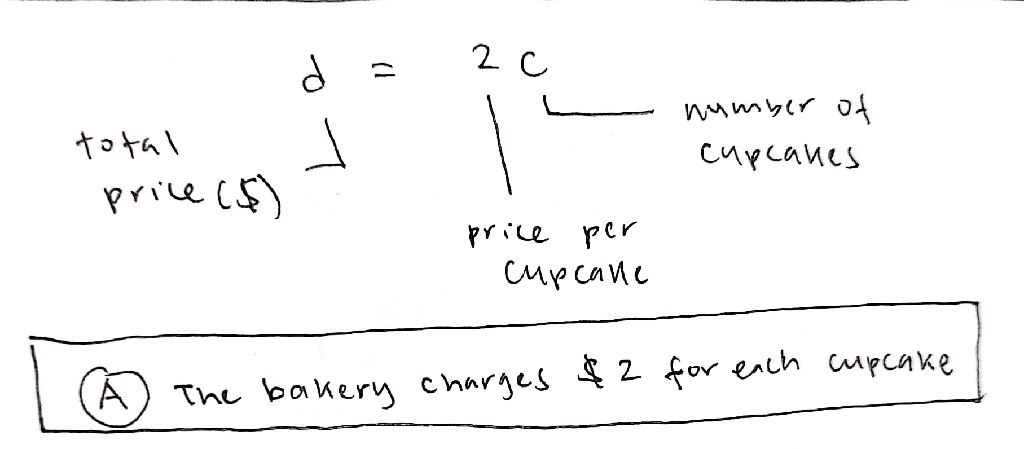 d = 2c
number of
cupcakes
total
price ($)
price per
cupcake
A The bakery charges $2 for each cupcake